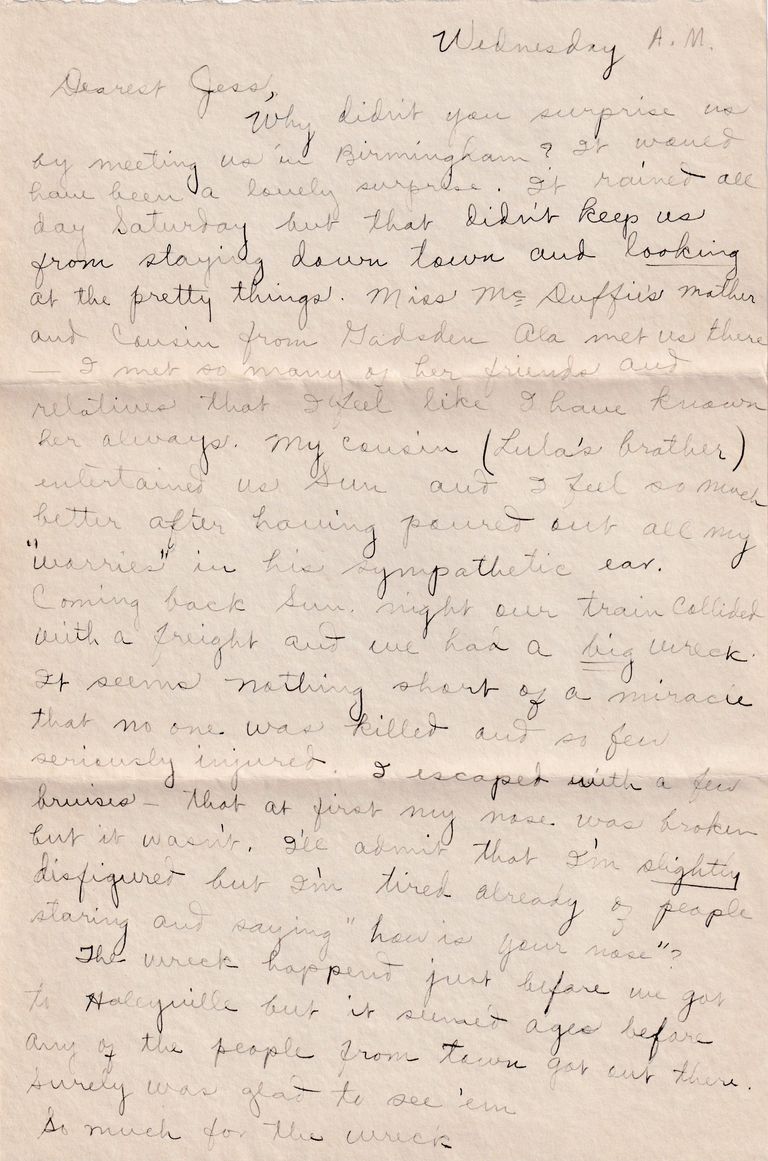 Wednesday A.M.
Dearest Jess,
Why didn't you surprise us
by meeting us in Birmingham? It would
have been a lovely surprise. It rained all
day Saturday but that didn't keep us
from staying down town and looking
at the pretty things. Miss Mc Duffie's mother
and cousin from Gadsden Ala met us there
— I met so many of her friends and
relatives that I feel like I have known
her always. My cousin (Lula's brother)
entertained us Sun and I feel so much
better after having poured out all my
"worries" in his sympathetic ear.
Coming back Sun. night our train collided
with a freight and we had a big wreck.
It seems nothing short of a miracle
that no one was killed and so few
seriously injured. I escaped with a few
bruises — that at first my nose was broken
but it wasn't. I'll admit that I'm slightly
disfigured but I'm tired already of people
staring and saying "how is your nose"?
The wreck happend just before we got
to Haleyville but it seemed ages before
any of the people from town got out there.
Surely was glad to see 'em
So much for the wreck